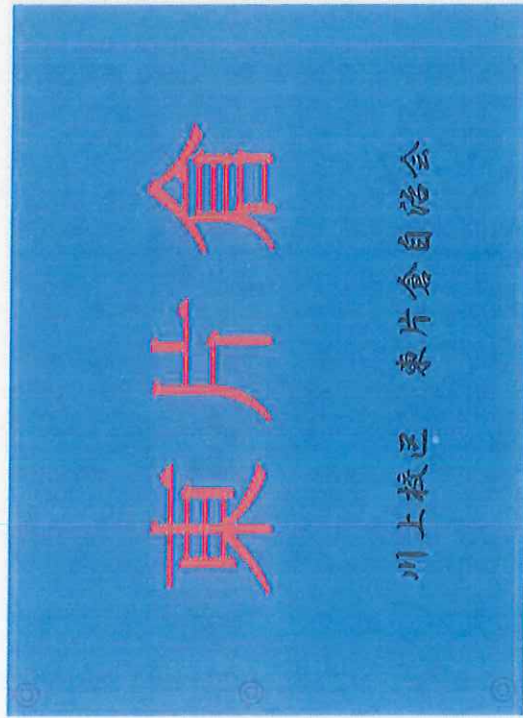 東片倉
川上校区 東片倉自治会